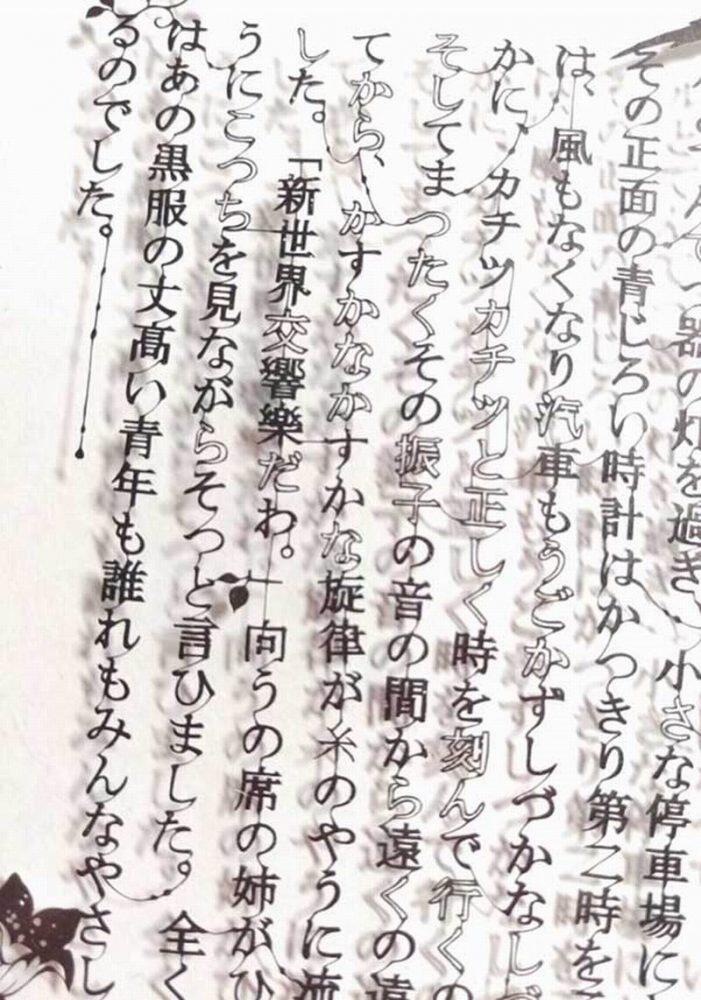 んてつ器の灯を過ぎ、小さな停車場に
その正面の青じろい時計はかつきり第二時を
は、風もなくなり汽車もうごかずしづかなしづ
かに、カチツカチツと正しく時を刻んで行くの
そしてまつたくその振子の音の間から遠くの遠
てから、かすかなかすかな旋律が糸のやうに流
した。「新世界交響樂だわ。」向うの席の姉がひ
うにこつちを見ながらそつと言ひました。全く
はあの黒服の丈高い青年も誰れもみんなやさし
るのでした。